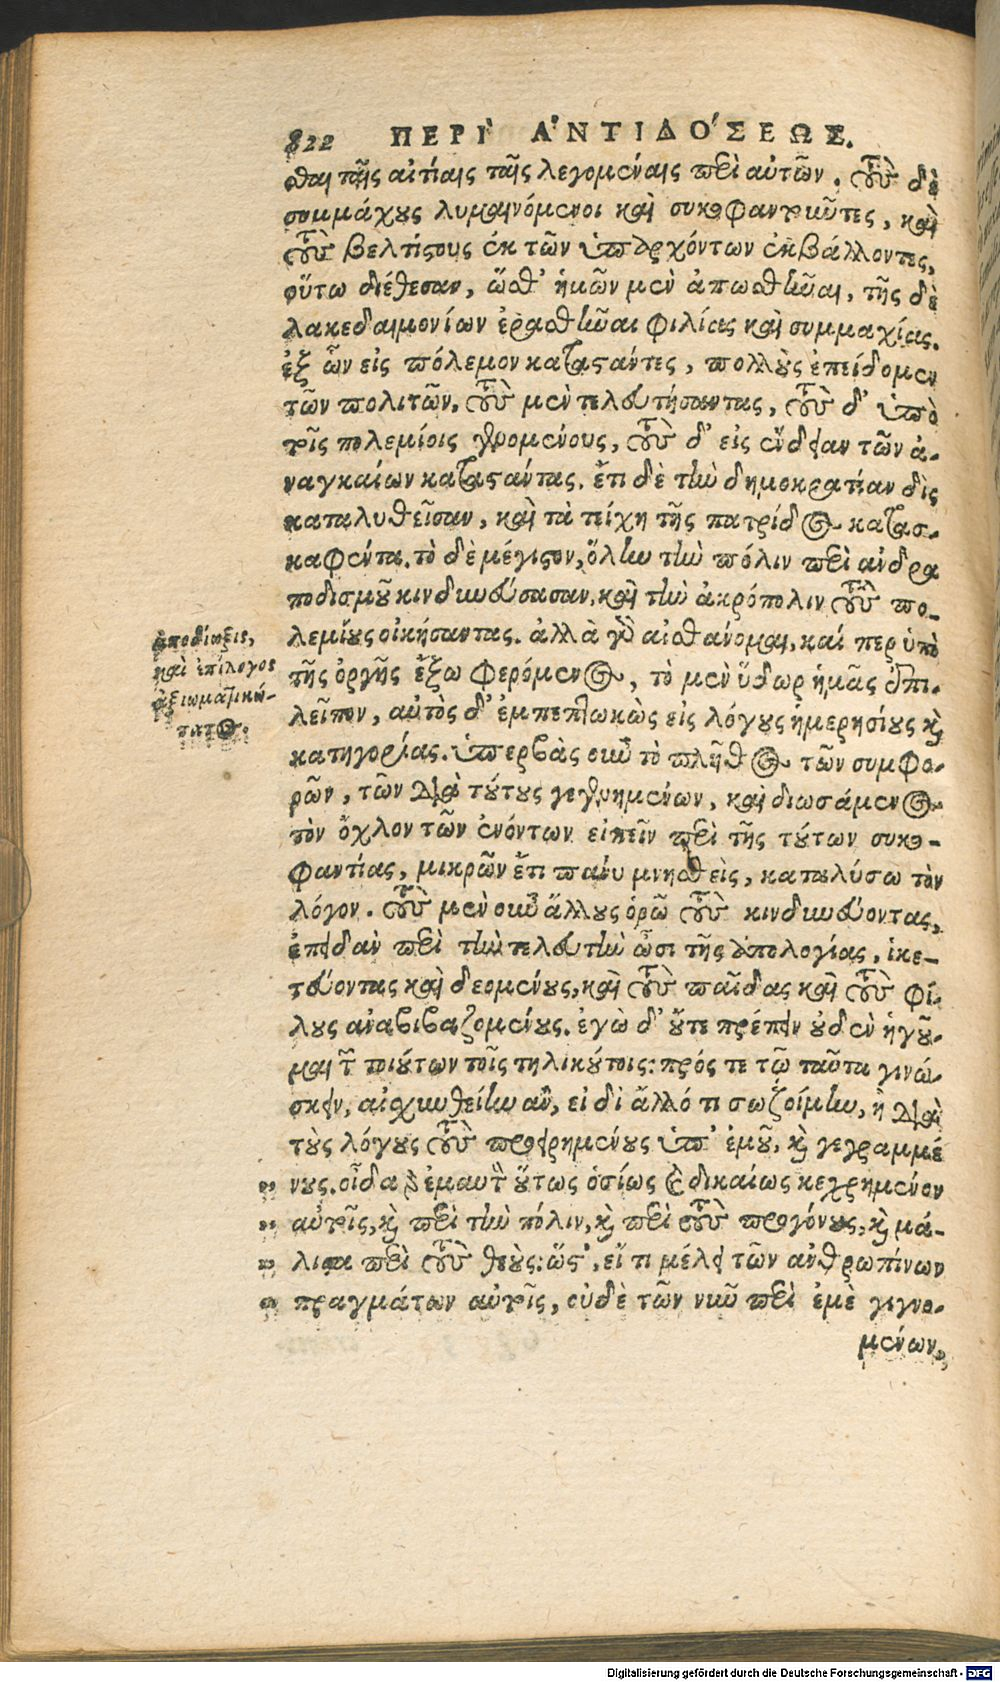 822 ΠΕΡῚ ἈΝΤΙΔΌΣΕΩΣ.
σθαι ταῖς αἰτίαις ταῖς λεγομέναις περὶ αὐτῶν. τοὺς δὲ
συμμάχους λυμαινόμενοι καὶ συκοφαντοῦντες, καὶ
τοὺς βελτίστους ἐκ τῶν ὑπαρχόντων ἐκβάλλοντες,
οὕτω διέθεσαν, ὥσθ' ἡμῶν μὲν ἀπωσθῆναι, τῆς δὲ
λακεδαιμονίων ἐρασθῆναι φιλίας καὶ συμμαχίας.
ἐξ ὧν εἰς πόλεμον καταστάντες, πολλοὺς ἐπείδομεν
τῶν πολιτῶν, τοὺς μὲν τελευτήσαντας, τοὺς δ' ὑπὸ
τοῖς πολεμίοις γενομένους, τοὺς δ' εἰς ἔνδειαν τῶν ἀ-
ναγκαίων καταστάντας. ἔτι δὲ τὴν δημοκρατίαν δὶς
καταλυθεῖσαν, καὶ τὰ τείχη τῆς πατρίδος κατασ-
καφέντα. τὸ δὲ μέγιστον, ὅλην τὴν πόλιν περὶ ἀνδρα
ποδισμοῦ κινδυνεύσασαν, καὶ τὴν ἀκρόπολιν τοὺς πο-
λεμίους οἰκήσαντας. ἀλλὰ γὰρ αἰσθάνομαι, καί περ ὑπὸ
τῆς ὀργῆς ἔξω φερόμενος, τὸ μὲν ὕδωρ ἡμᾶς ἐπι-
λεῖπον, αὐτὸς δ' ἐμπεπτωκὼς εἰς λόγους ἡμερησίους καὶ
κατηγορίας. ὑπερβὰς οὖν τὸ πλῆθος τῶν συμφο-
ρῶν, τῶν διὰ τούτους γεγενημένων, καὶ διωσάμενος
τὸν ὄχλον τῶν ἐνόντων εἰπεῖν περὶ τῆς τούτων συκο-
φαντίας, μικρῶν ἔτι πάνυ μνησθεὶς, καταλύσω τὸν
λόγον. τοὺς μὲν οὖν ἄλλους ὁρῶ τοὺς κινδυνεύοντας,
ἐπειδὰν περὶ τὴν τελευτὴν ὦσι τῆς ἀπολογίας, ἱκε-
τεύοντας καὶ δεομένους, καὶ τοὺς παῖδας καὶ τοὺς φί-
λους ἀναβιβαζομένους. ἐγὼ δ' οὔτε πρέπειν οὐδὲν ἡγοῦ-
μαι τῶν τοιούτων τοῖς τηλικούτοις: πρός τε τῷ ταῦτα γινώ-
σκειν, αἰσχυνθείην ἂν, εἰ δι' ἄλλό τι σωζοίμην, ἢ διὰ
τοὺς λόγους τοὺς προειρημένους ὑπ' ἐμοῦ, καὶ γεγραμμέ
„ νους. οἶδα γὰρ ἐμαυτὸν οὕτως ὁσίως καὶ δικαίως κεχρημένον
„ αὐτοῖς, καὶ περὶ τὴν πόλιν, καὶ περὶ τοὺς προγόνους, καὶ μά-
„ λιστα περὶ τοὺς θεούς: ὥστ', εἴ τι μέλει τῶν ἀνθρωπίνων
„ πραγμάτων αὐτοῖς, οὐδὲ τῶν νῦν περὶ ἐμὲ γιγνο-
μένων,
ἀποδίωξις,
καὶ ἐπίλογος
ἀξιωματικώ-
τατος.
Digitalisierung gefördert durch die Deutsche Forschungsgemeinschaft - DFG